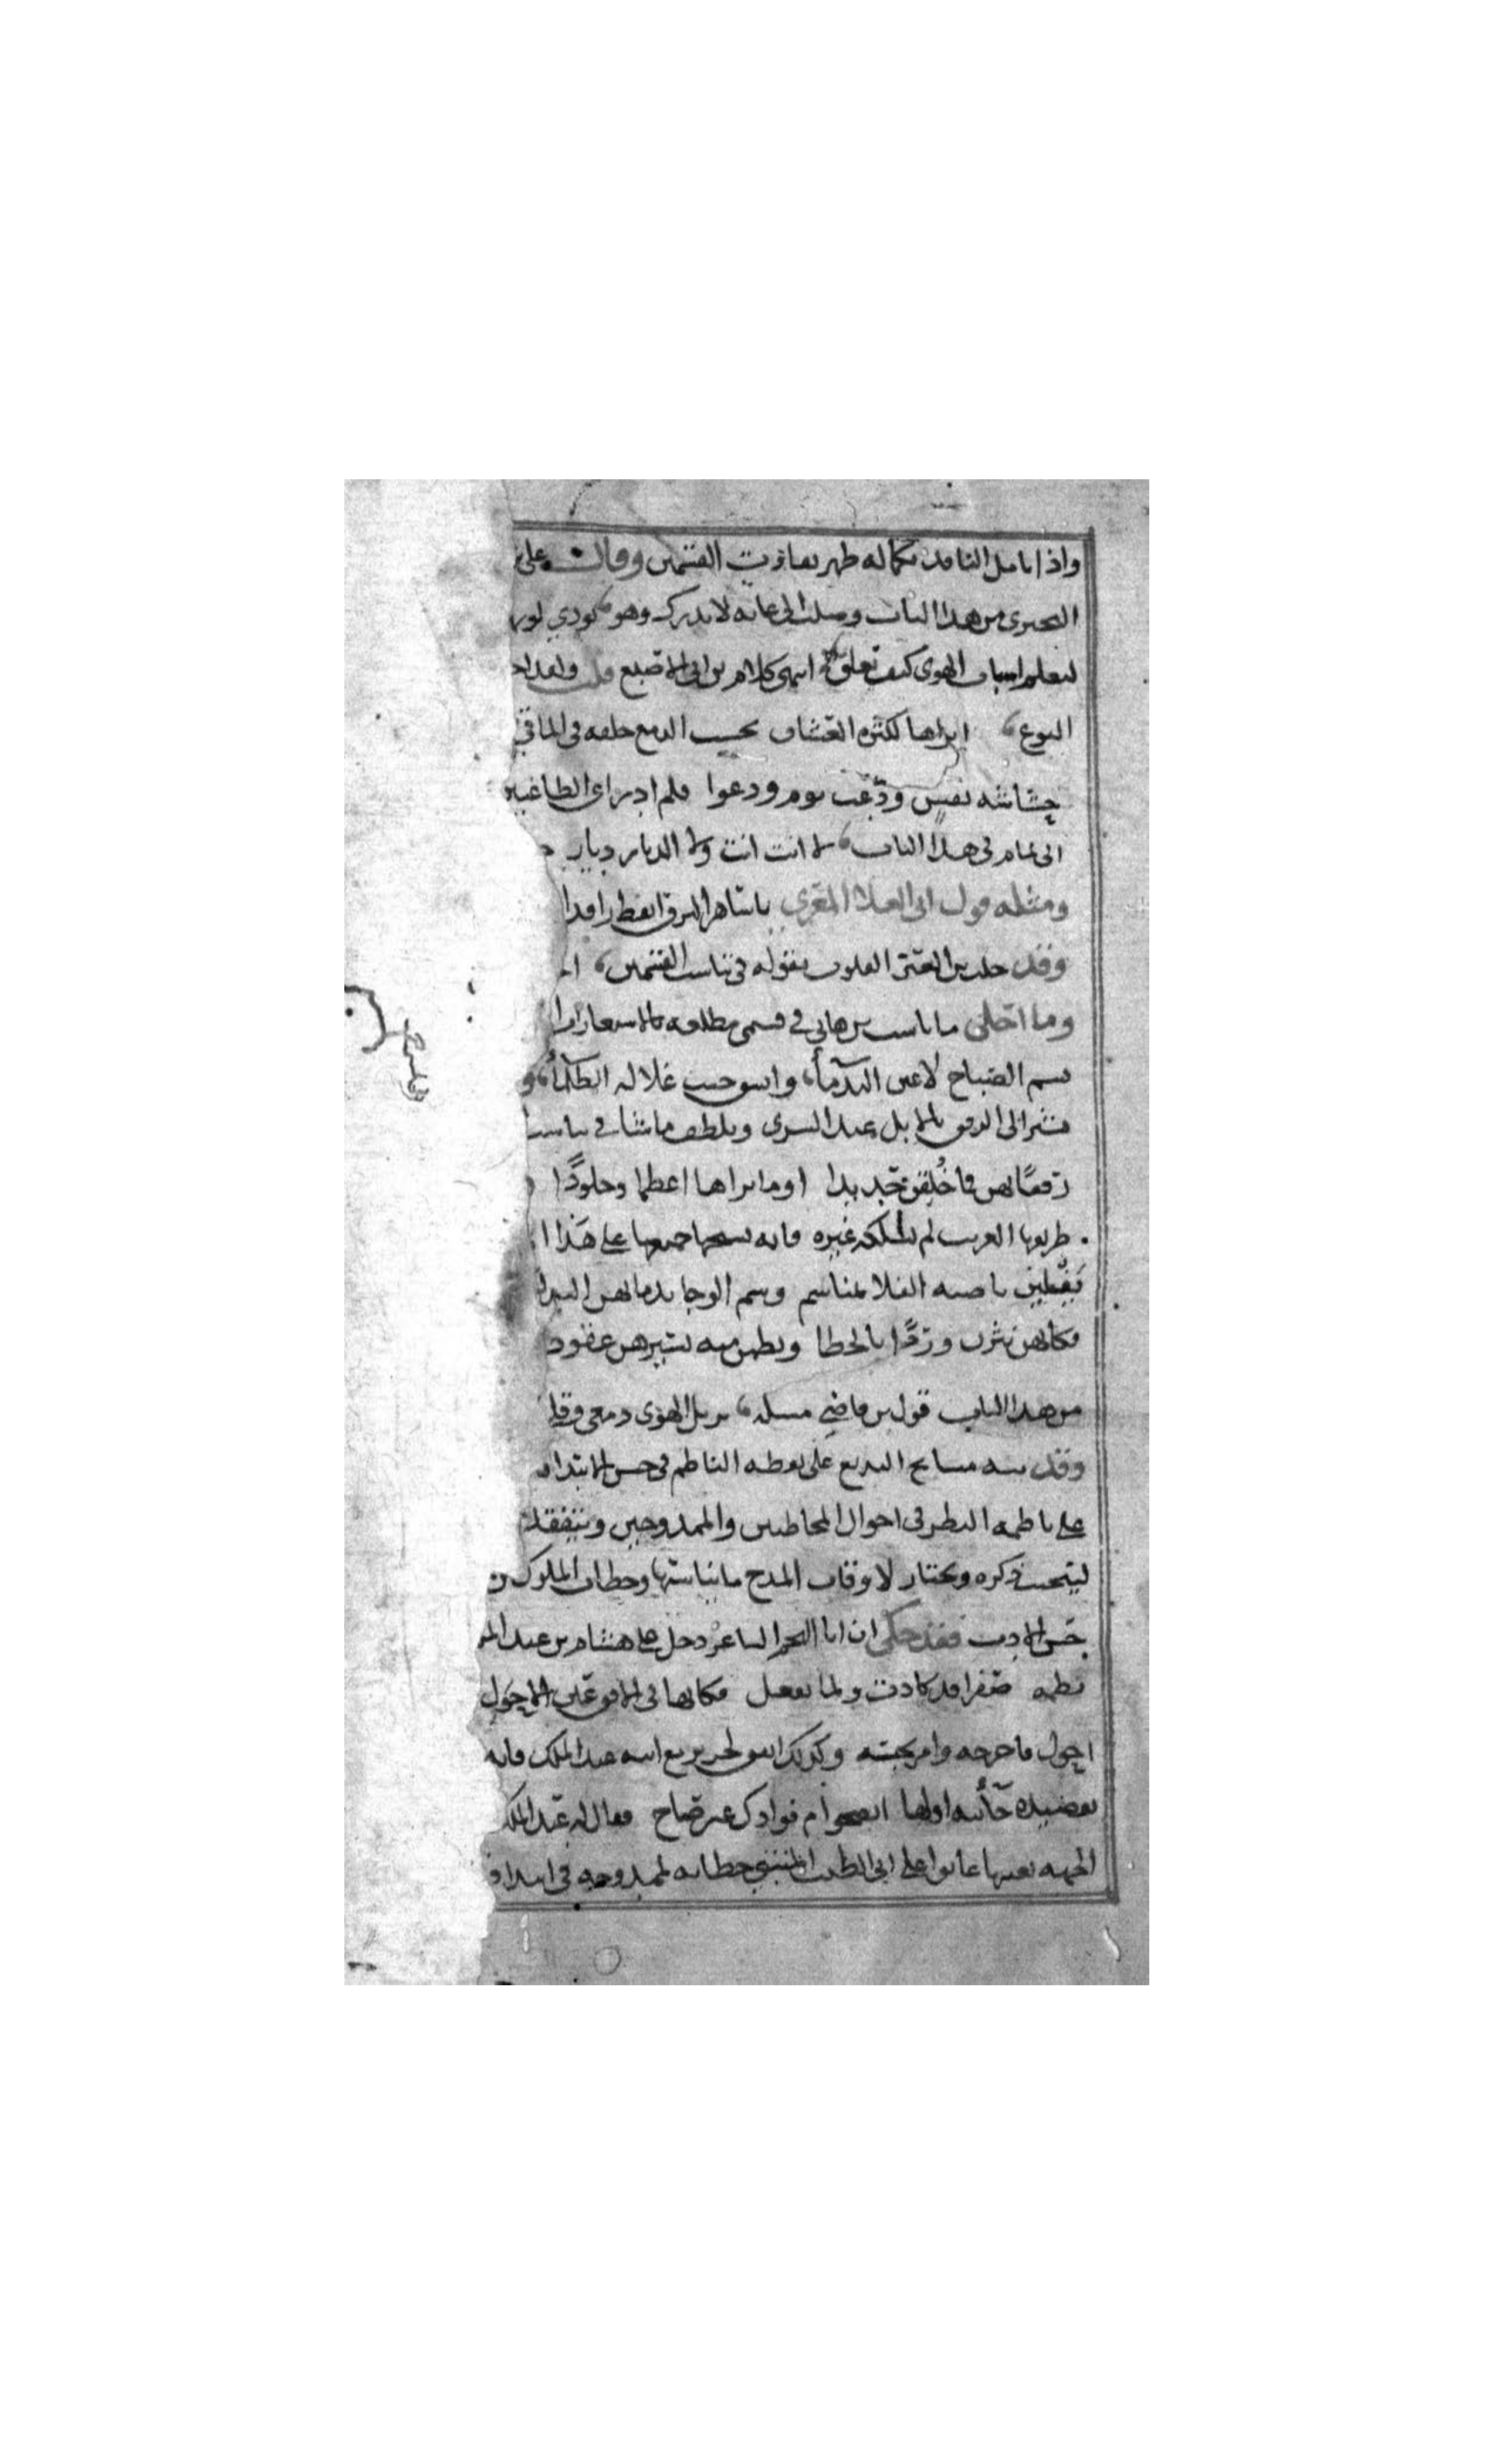 واذا تامل الناقد بكماله ظهر تفاوت القسمين وقال على
البحترى من هذا الباب وصلت الى غايه لا تدرك وهو بودي لو
ليعلم اسباب الهوى كيف تعلق انتهى كلام بن ابي الاصبع قلت ولقد
النوع اتراها لكثره العشاق تحسب الدمع خلقه في الماقي
حشاشه نفس ودعت يوم ودعوا فلم ادر اي الظاعنين
ابي تمام في هذا الباب لا انت انت ولا الديار ديار
ومثله قول ابي العلا المعري يا ساهر البرق ايقظ راقد
وقد خلب بن المعتز القلوب بقوله في تناسب القسمين
وما احلى ما ناسب بن هاني في قسمي مطلعه بالاستعارات
بسم الصباح لاعين الندما وانشق جيب غلاله الظلما و
مشير الى الرفق بالابل عند السرى وتلطف ما شا في تناسب
رفقا بهن فما خلقن حديدا اوما تراها اعظما وجلودا
طريقها الغريب لم يسلكه غيره فانه نسجها جميعها على هذا
يفلين ناصيه الفلا بمناسم وسم الوجا بدمائهن البيد
فكانهن نثرن وردا بالخطا ونظمن منه بسيرهن عقودا
من هذا الباب قول بن قاضي ميله يزيل الهوى دمعي وقلبي
وقد نبه مشايخ البديع على يقظه الناظم في حسن الابتدا
على ناظمه النظر في احوال المخاطبين والممدوحين ويتفقد
ليتجنب ذكره ويختار لاوقات المدح ما يناسبها وخطاب الملوك
حسن الادب فقد حكي ان ابا النجم الشاعر دخل على هشام بن عبد الملـ
نظمه صفرا قد كادت ولما تفعل فكانها في الافق عين الاحول
احول فاخرجه وامر بحبسه وكذلك اتفق لجرير مع ابيه عبد الملك فانه
بقصيده حائيه اولها اتصحو ام فوادك غير صاح فقال له عبد الملك
الحميه بعينها عابوا على ابي الطيب المتنبي خطابه لممدوحه في ابتدا